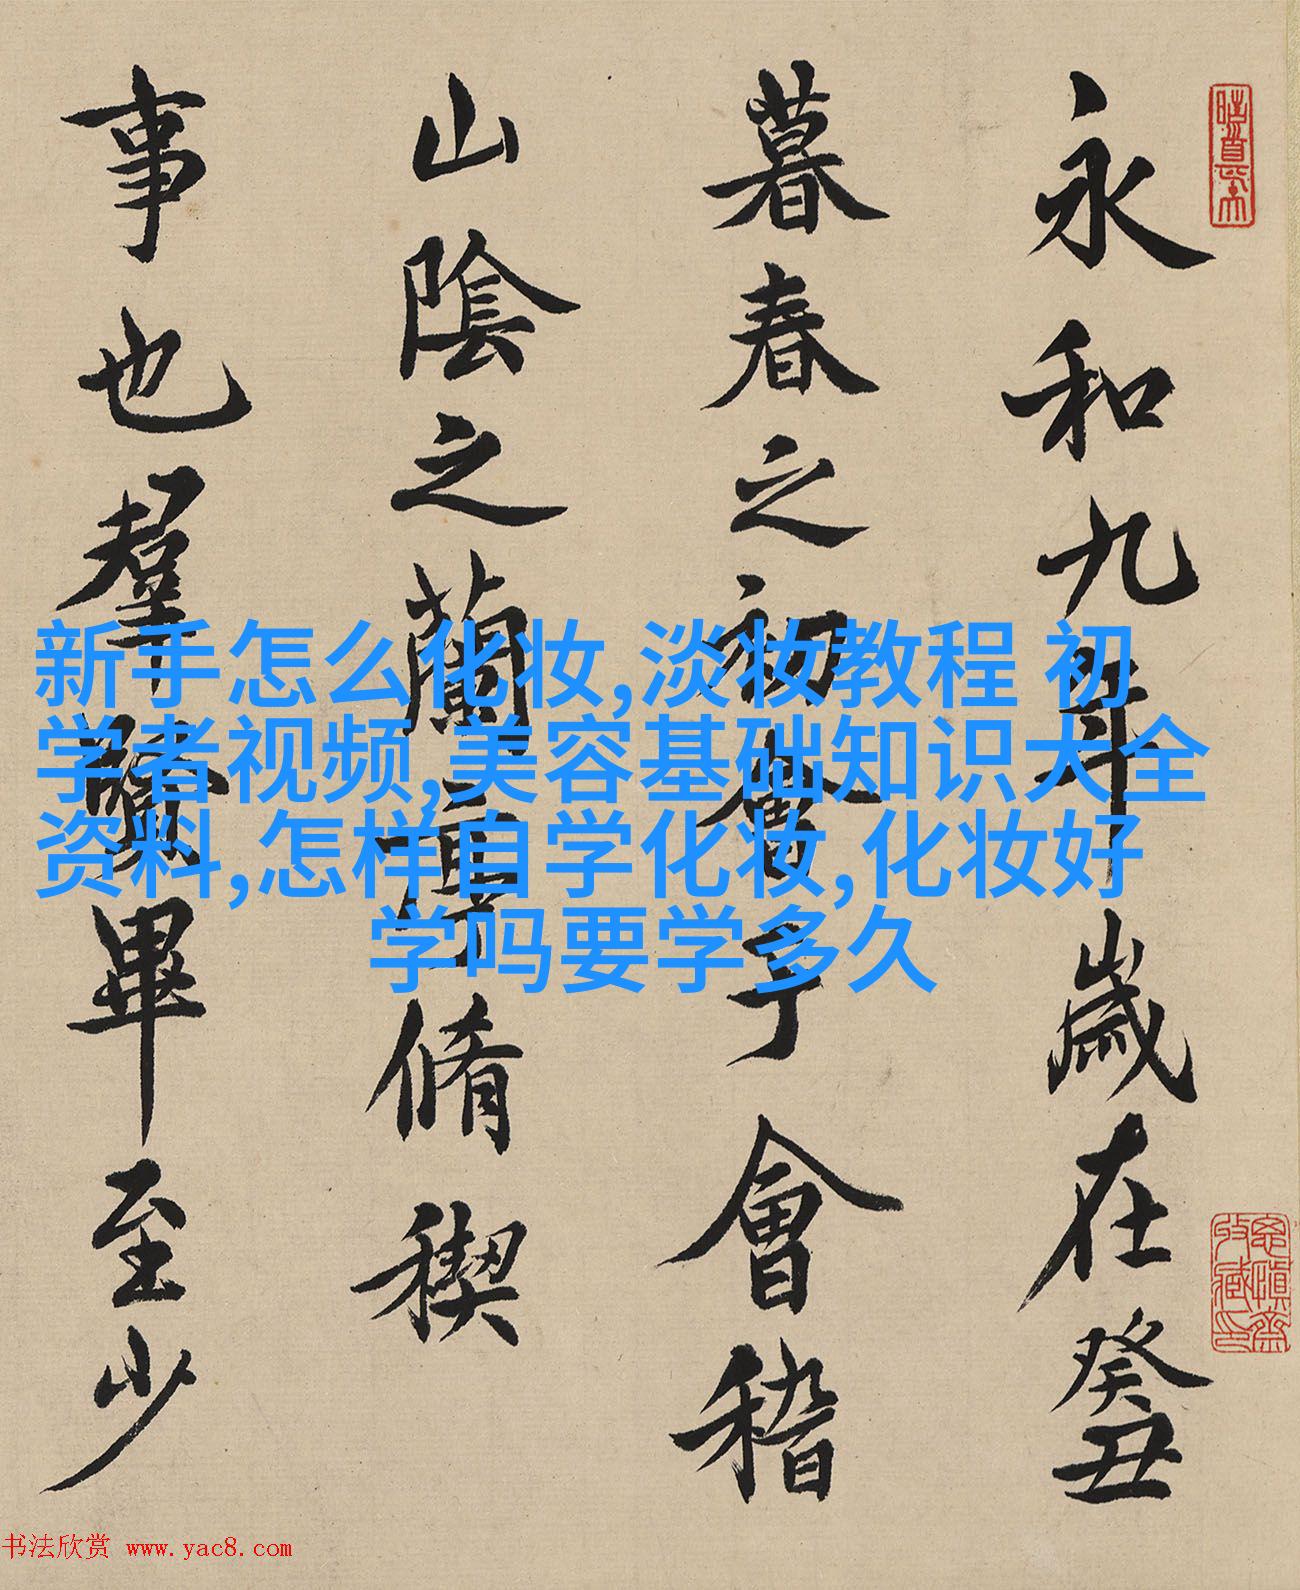 永和九年歲在癸丑
暮春之初會于會稽
山陰之蘭亭脩稧
事也羣賢畢至少
新手怎么化妆,淡妆教程 初
学者视频,美容基础知识大全
资料,怎样自学化妆,化妆好
学吗要学多久
书法欣赏 www.yac8.com